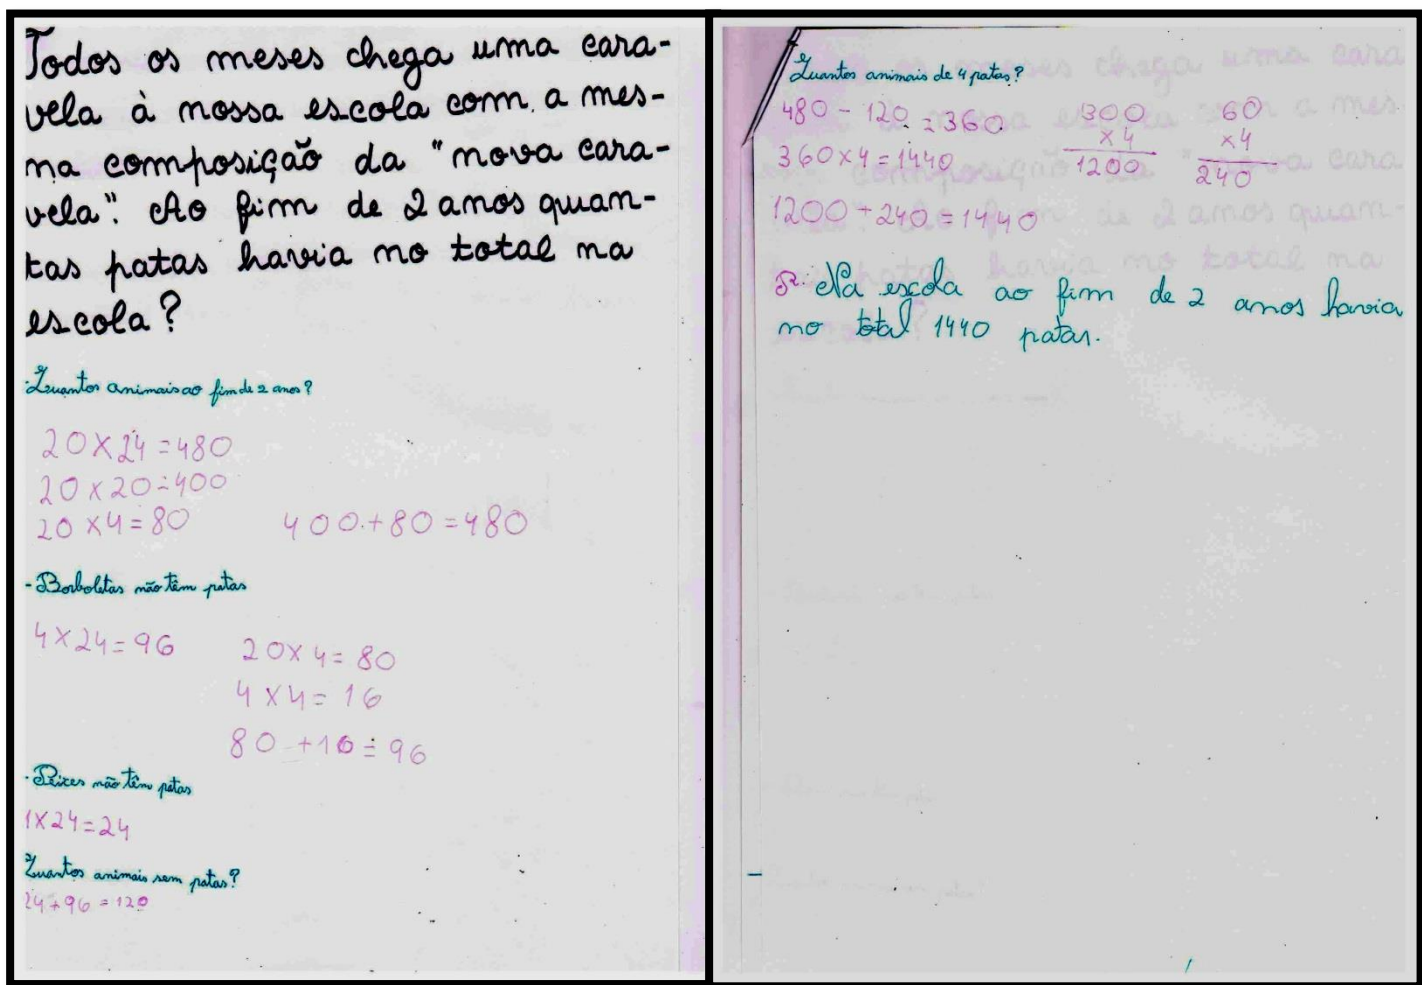 Todos os meses chega uma cara-
vela à nossa escola com a mes-
ma composição da "nova cara-
vela". Ao fim de 2 anos quan-
tas patas havia no total na
escola?
Quantos animais ao fim de 2 anos?
20 x 24 = 480
20 x 20 = 400
20 x 4 = 80 400 + 80 = 480
- Borboletas não têm patas
4 x 24 = 96 20 x 4 = 80
4 x 4 = 16
80 + 16 = 96
- Peixes não têm patas
1 x 24 = 24
Quantos animais sem patas?
24 + 96 = 120
Quantos animais de 4 patas?
480 - 120 = 360 300 60
x4 x4
360 x 4 = 1440 1200 240
1200 + 240 = 1440
R: Na escola ao fim de 2 anos havia
no total 1440 patas.